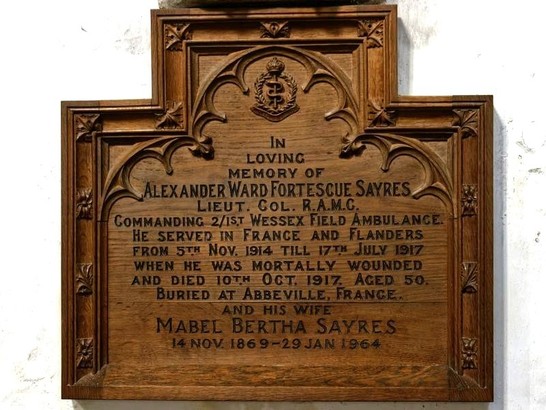 IN
LOVING
MEMORY OF
ALEXANDER WARD FORTESCUE SAYRES
LIEUT. COL. R.A.M.C.
COMMANDING 2/1ST WESSEX FIELD AMBULANCE.
HE SERVED IN FRANCE AND FLANDERS
FROM 5TH NOV. 1914 TILL 17TH JULY 1917
WHEN HE WAS MORTALLY WOUNDED
AND DIED 10TH OCT. 1917. AGED 50.
BURIED AT ABBEVILLE, FRANCE.
AND HIS WIFE
MABEL BERTHA SAYRES
14 NOV. 1869-29 JAN 1964